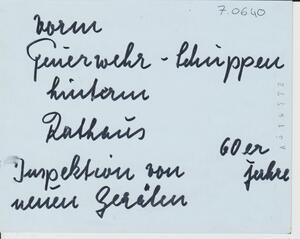 7.0640
vorm
Feuerwehr-Schuppen
hinterm
Rathaus
60er
Inspektion von Jahre
neuen Geräten